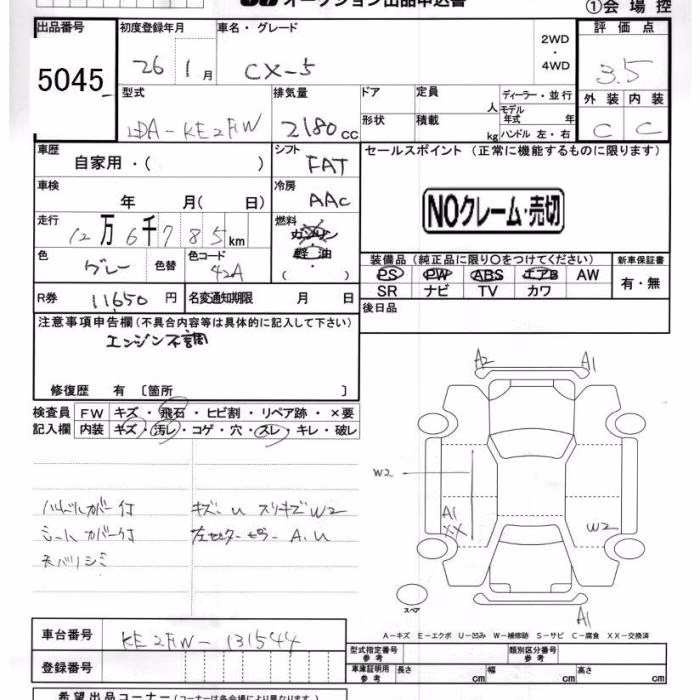 オークション出品申込書
①会場控
出品番号
5045
初度登録年月
26 1月
車名・グレード
CX-5
2WD
・
4WD
評価点
3.5
外装 内装
C C
型式
LDA-KE2FW
排気量
2180cc
ドア
形状
定員
人
積載
kg
ディーラー・並行
モデル
年式 年
ハンドル 左・右
車歴
自家用・( )
シフト
FAT
セールスポイント (正常に機能するものに限ります)
NOクレーム・売切
車検
年 月(日)
冷房
AAC
走行
12万6千785km
燃料
ガソリン
軽油
( ・ )
色
グレー
色替
色コード
42A
装備品(純正品に限り〇をつけてください)
PS PW ABS エアB AW
SR ナビ TV カワ
新車保証書
有・無
R券 11650円
名変通知期限 月 日
後日品
注意事項申告欄(不具合内容等は具体的に記入して下さい)
エンジン不調
修復歴 有 〔箇所 〕
検査員
記入欄
FW キズ・飛石・ヒビ割・リペア跡・×要
内装 キズ・汚レ・コゲ・穴・スレ・キレ・破レ
ハンドルカバー付
シートカバー付
ネバリシミ
キズ、U スリキズW2
左センターピラー A、U
A2
A1
W2
A1
XX
W2
A1
スペア
A-キズ E-エクボ U-凹み W-補修跡 S-サビ C-腐食 XX-交換済
車台番号
KE2FW-131544
登録番号
型式指定番号
参考
類別区分番号
参考
車庫証明用
参考
長さ cm
幅 cm
高さ cm
希望出品コーナー(コーナーは各会場により異なります。)